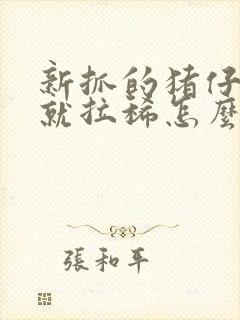 新抓的猪仔
就拉稀怎麼
張和平